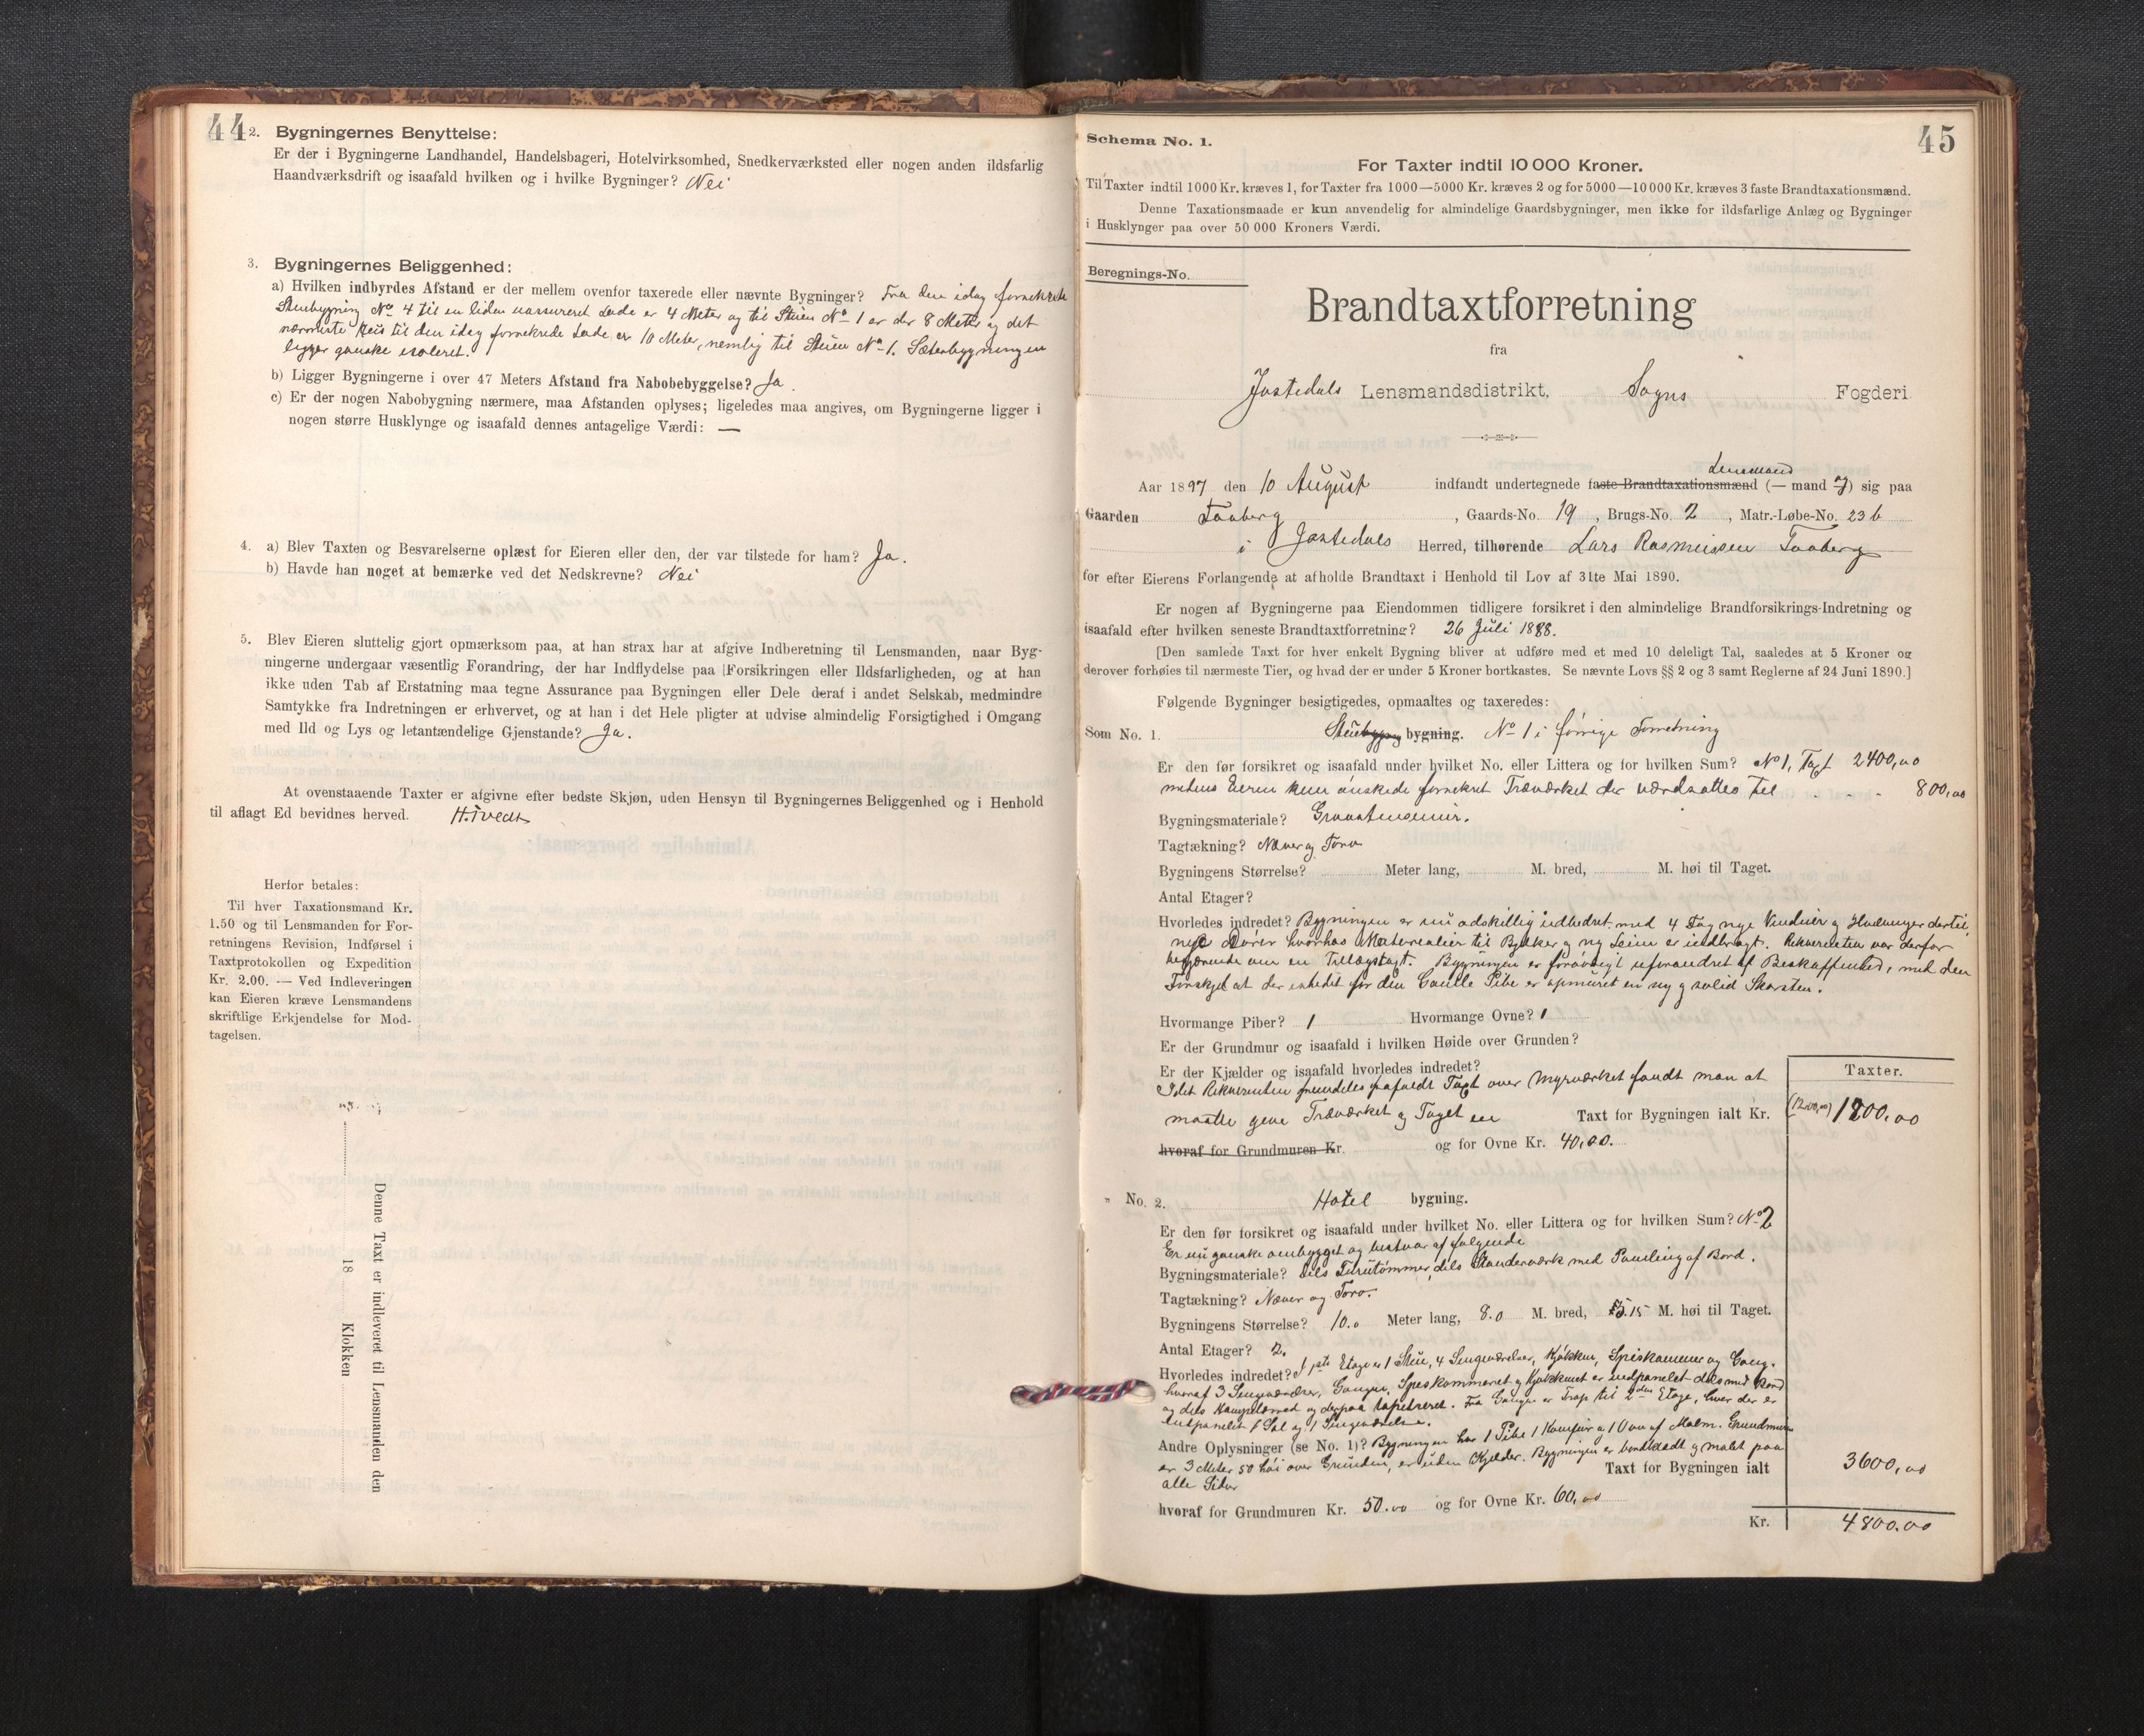 44
2. Bygningernes Benyttelse:
Er der i Bygningerne Landhandel, Handelsbageri, Hotelvirksomhed, Snedkerværksted eller nogen anden ildsfarlig
Haandværksdrift og isaafald hvilken og i hvilke Bygninger? Nei
3. Bygningernes Beliggenhed:
a) Hvilken indbyrdes Afstand er der mellem ovenfor taxerede eller nævnte Bygninger? Fra den idag forsikrede
Stuebygning No 4 til en liden uassureret Lade er 4 Meter og til Stuen No 1 er der 8 Meter og det
nærmeste Huus til den idag forsikrede Lade er 10 Meter, nemlig til Stuen No 1. Sæterbygningen
ligger ganske isoleret.
b) Ligger Bygningerne i over 47 Meters Afstand fra Nabobebyggelse? Ja.
c) Er der nogen Nabobygning nærmere, maa Afstanden oplyses; ligeledes maa angives, om Bygningerne ligger i
nogen større Husklynge og isaafald dennes antagelige Værdi: —
4. a) Blev Taxten og Besvarelserne oplæst for Eieren eller den, der var tilstede for ham? Ja.
b) Havde han noget at bemærke ved det Nedskrevne? Nei
5. Blev Eieren sluttelig gjort opmærksom paa, at han strax har at afgive Indberetning til Lensmanden, naar Byg-
ningerne undergaar væsentlig Forandring, der har Indflydelse paa Forsikringen eller Ildsfarligheden, og at han
ikke uden Tab af Erstatning maa tegne Assurance paa Bygningen eller Dele deraf i andet Selskab, medmindre
Samtykke fra Indretningen er erhvervet, og at han i det Hele pligter at udvise almindelig Forsigtighed i Omgang
med Ild og Lys og letantændelige Gjenstande? Ja.
At ovenstaaende Taxter er afgivne efter bedste Skjøn, uden Hensyn til Bygningernes Beliggenhed og i Henhold
til aflagt Ed bevidnes herved. H. Tvedt
Herfor betales:
Til hver Taxationsmand Kr.
1.50 og til Lensmanden for For-
retningens Revision, Indførsel i
Taxtprotokollen og Expedition
Kr. 2.00. — Ved Indleveringen
kan Eieren kræve Lensmandens
skriftlige Erkjendelse for Mod-
tagelsen.
Denne Taxt er indleveret til Lensmanden den
18 Klokken
45
Schema No. 1.
For Taxter indtil 10 000 Kroner.
Til Taxter indtil 1000 Kr. kræves 1, for Taxter fra 1000—5000 Kr. kræves 2 og for 5000—10 000 Kr. kræves 3 faste Brandtaxationsmænd.
Denne Taxationsmaade er kun anvendelig for almindelige Gaardsbygninger, men ikke for ildsfarlige Anlæg og Bygninger
i Husklynger paa over 50 000 Kroners Værdi.
Beregnings-No.
Brandtaxtforretning
fra
Jostedals Lensmandsdistrikt, Sogns Fogderi
Lensmand
Aar 1897 den 10 August indfandt undertegnede faste Brandtaxationsmænd (— mand) sig paa
Gaarden Faaberg, Gaards-No. 19, Brugs-No. 2, Matr.-Løbe-No. 23 b
i Jostedals Herred, tilhørende Lars Rasmussen Faaberg
for efter Eierens Forlangende at afholde Brandtaxt i Henhold til Lov af 31te Mai 1890.
Er nogen af Bygningerne paa Eiendommen tidligere forsikret i den almindelige Brandforsikrings-Indretning og
isaafald efter hvilken seneste Brandtaxtforretning? 26 Juli 1888.
[Den samlede Taxt for hver enkelt Bygning bliver at udføre med et med 10 deleligt Tal, saaledes at 5 Kroner og
derover forhøies til nærmeste Tier, og hvad der er under 5 Kroner bortkastes. Se nævnte Lovs §§ 2 og 3 samt Reglerne af 24 Juni 1890.]
Følgende Bygninger besigtigedes, opmaaltes og taxeredes:
Som No. 1. Stuebygng bygning. No 1 i forrige Forretning
Er den før forsikret og isaafald under hvilket No. eller Littera og for hvilken Sum? No 1, Taxt 2400,00
medens Eieren kun ønskede forsikret Træværket der værdsattes til - - - 800,00
Bygningsmateriale?
Tagtækning? Næver og Torv
Bygningens Størrelse? Meter lang, M. bred, M. høi til Taget.
Antal Etager?
Hvorledes indredet? Bygningen er nu adskillig udbedret med 4 Fag nye Vinduer og dertil,
nye Dører hvorhos Materealier til Bjelker og ny Svin er indbragt. Rekvirenten var derfor
begjærende om en Tillægstaxt. Bygningen er forøvrigt uforandret af Beskaffenhed, med den
Forskjel at der istedet for den Gamle Pibe er opmuret en ny og solid Skorsten.
Hvormange Piber? 1 Hvormange Ovne? 1
Er der Grundmur og isaafald i hvilken Høide over Grunden?
Er der Kjælder og isaafald hvorledes indredet?
Idet Rekvirenten fremdeles frafaldt Taxt over Myrværket fandt man at
maatte give Træværket og Taget en Taxt for Bygningen ialt Kr. (1200,00) 1200,00
hvoraf for Grundmuren Kr. og for Ovne Kr. 40,00.
Taxter.
" No. 2. Hotel bygning.
Er den før forsikret og isaafald under hvilket No. eller Littera og for hvilken Sum? No 2
Er nu ganske ombygget og bestaar af følgende
Bygningsmateriale? dels Furutømmer, dels Standerværk med Panling af Bord.
Tagtækning? Næver og Torv.
Bygningens Størrelse? 10.0 Meter lang, 8.0 M. bred, 5.15 M. høi til Taget.
Antal Etager? 2.
Hvorledes indredet? I 1ste Etage er 1 Stue, 4 Sengeværelser, Kjøkken, Spiskammer og Gang.
hvoraf 3 Sengeværelser, Gangen, Speskammeret og Kjøkkenet er udpanelet dels med Bord
og dels og derpaa tapetseret. Fra Gangen er Trap til 2den Etage, hvor der er
1 Sal og 1 Sengeværelse.
Andre Oplysninger (se No. 1)? Bygningen har 1 Pibe 1 Komfur og 1 Ovn af Malm. Grundmuren
er 3 Meter 50 høi over Grunden, er uden Kjelder. Bygningen er bordklædt og malet paa
alle Sider Taxt for Bygningen ialt 3600,00
hvoraf for Grundmuren Kr. 50.00 og for Ovne Kr. 60,00
Kr. 4800.00